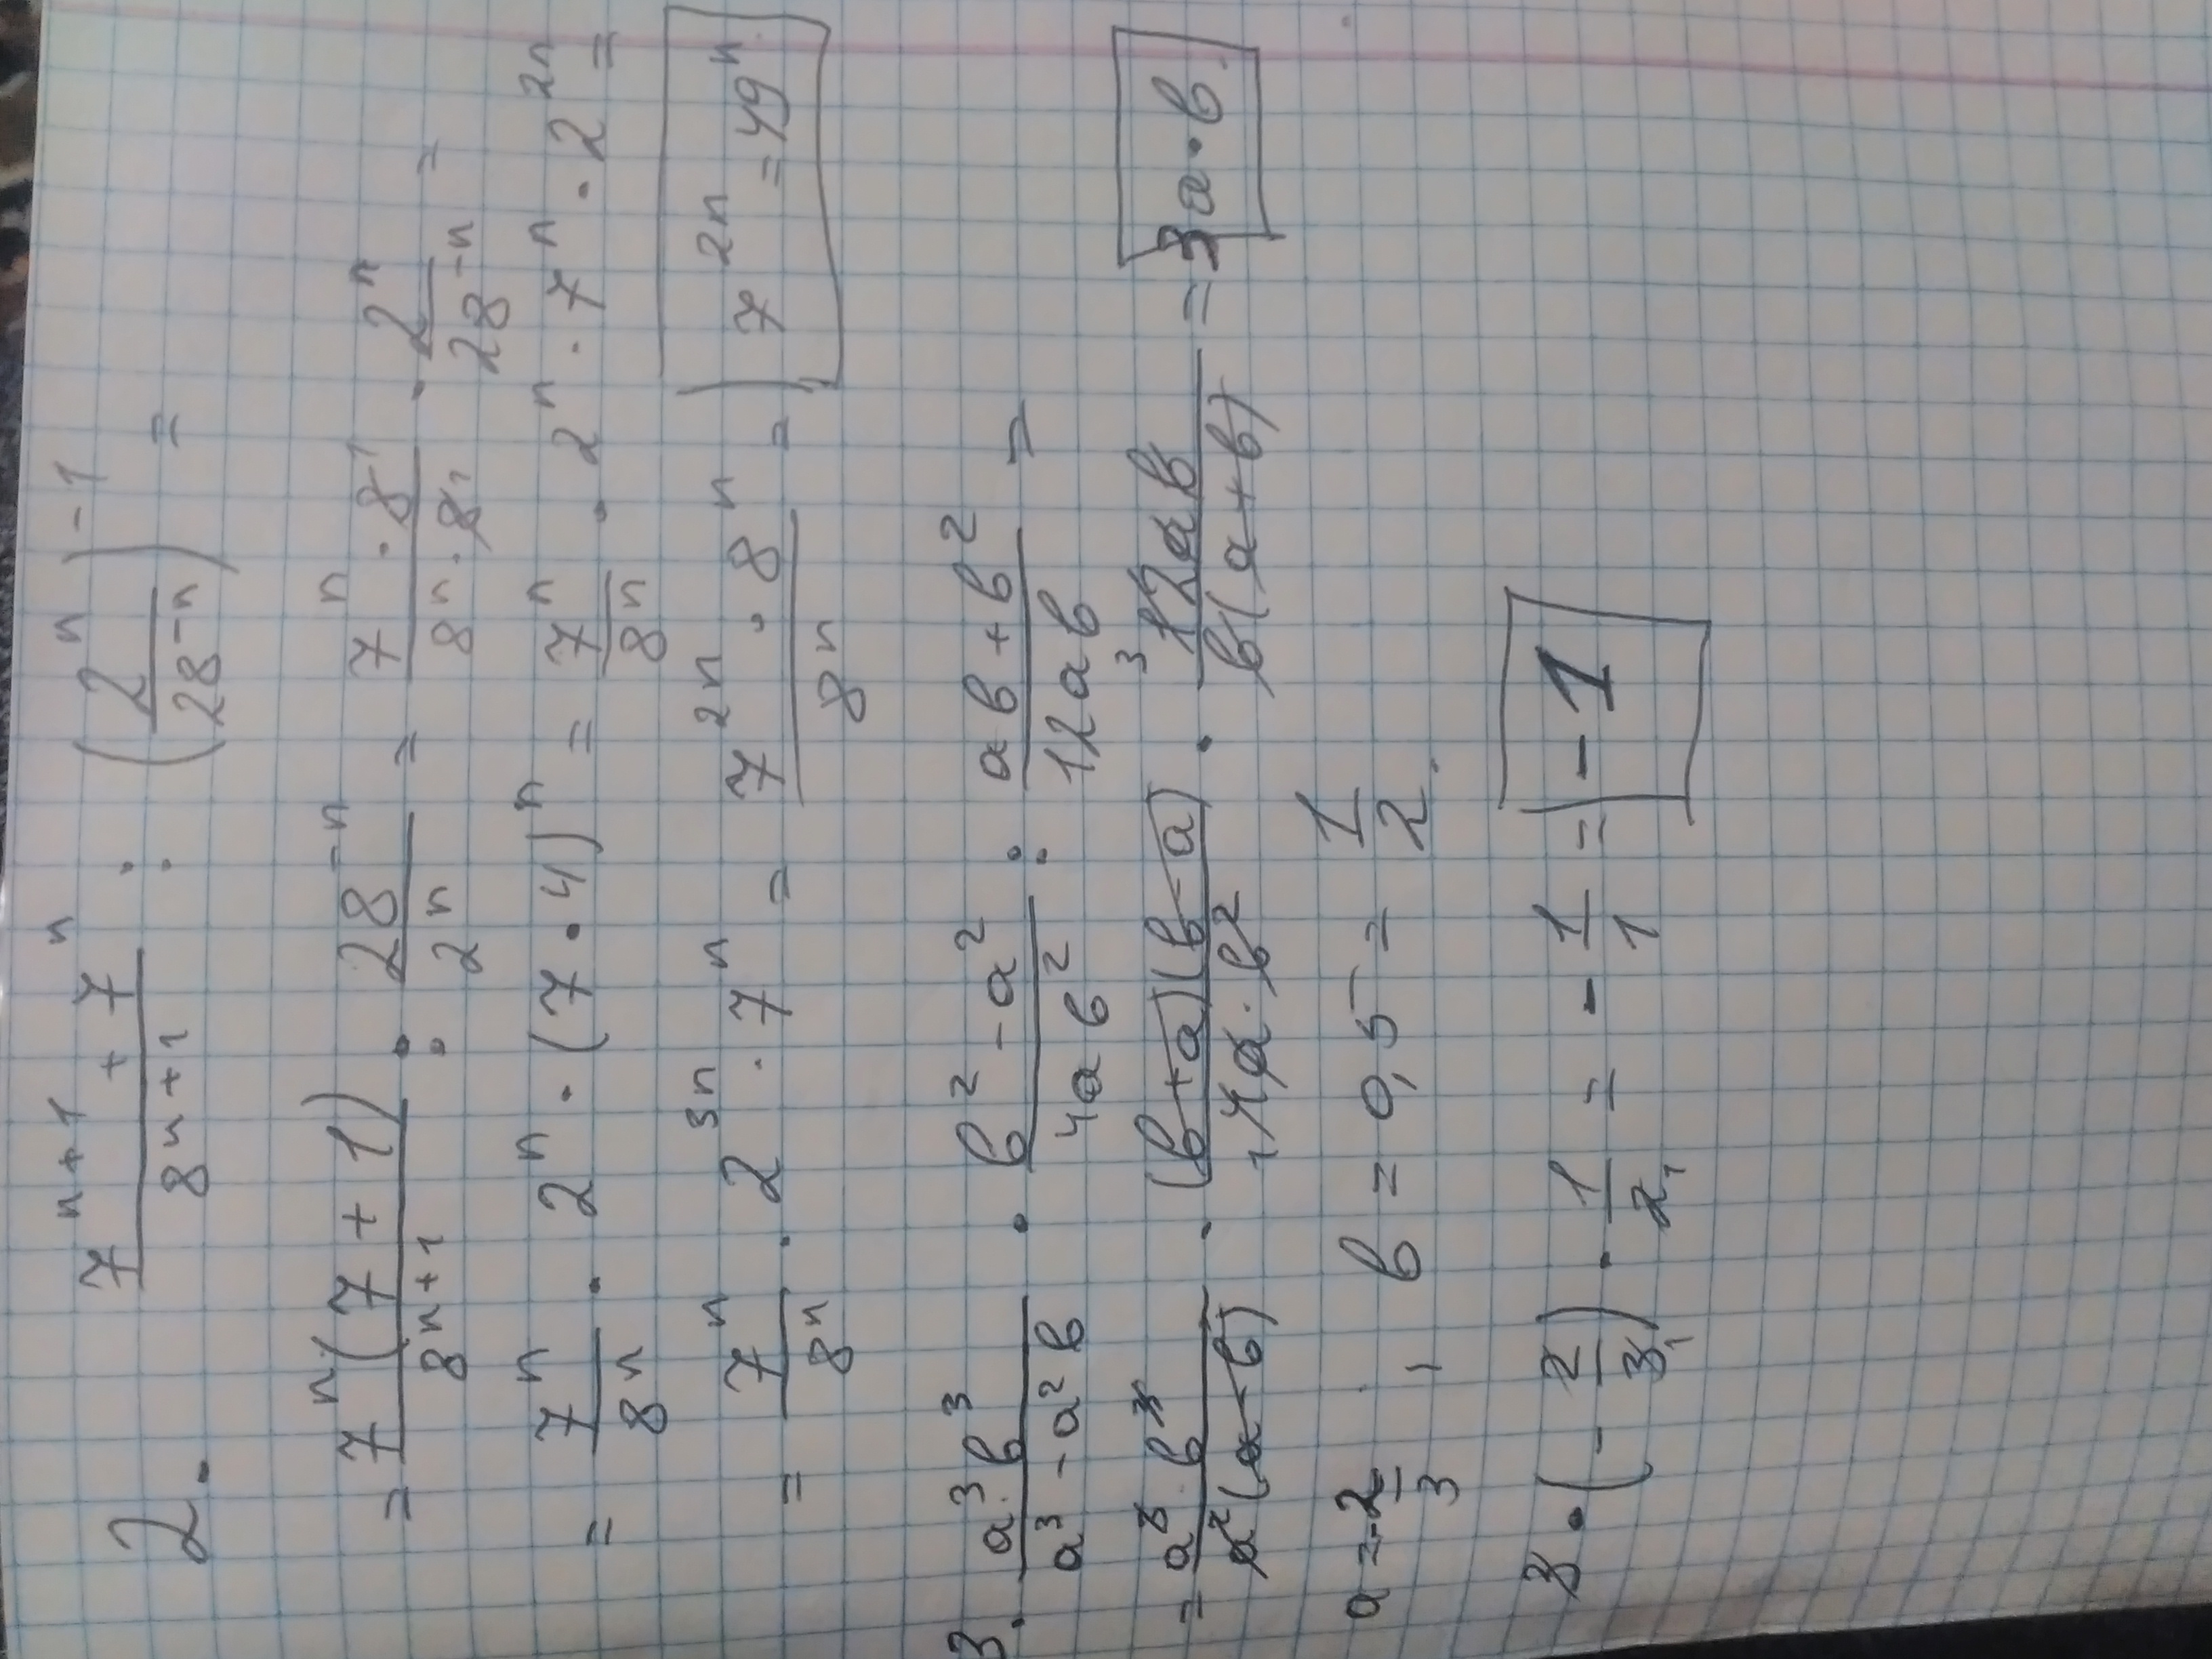 2. (7^(n+1) + 7^n)/8^(n+1) : (2^n/28^(-n))^(-1) =
= 7^n(7+1)/8^(n+1) : 28^(-n)/2^n = 7^n · 8/8^n · 8 · 2^n/28^(-n) =
= 7^n/8^n · 2^n · (7·4)^n = 7^n/8^n · 2^n · 7^n · 2^(2n) =
= 7^n/8^n · 2^(3n) · 7^n = 7^(2n) · 8^n/8^n = 7^(2n) = 49^n.
3. a^3 · в^3/(a^3 - a^2 в) · (в^2 - a^2)/(4aв^2) : (aв + в^2)/(12aв) =
= a^3 · в^3/(a^2(a-в)) · (в+a)(в-a)/(4a · в^2) · 12aв/(в(a+в)) = 3a·в.
a = -2/3, в = 0,5 = 1/2.
3 · (-2/3) · 1/2 = -1/1 = -1